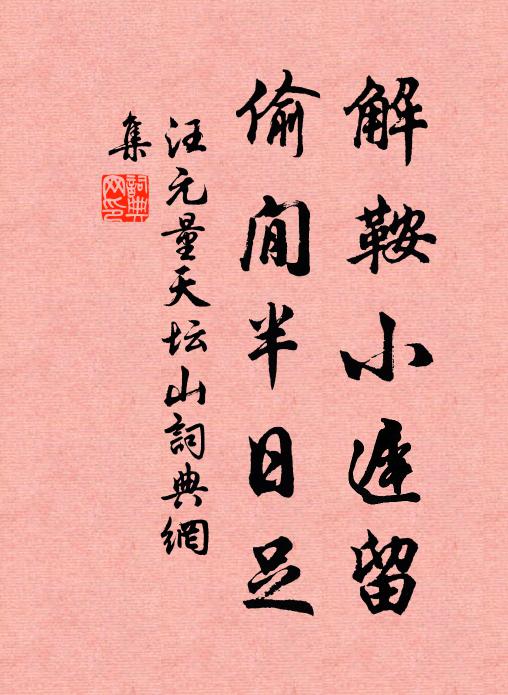 解鞍小遲留
偷閒半日足
汪元量天坛山詞典網
集
詞典網印